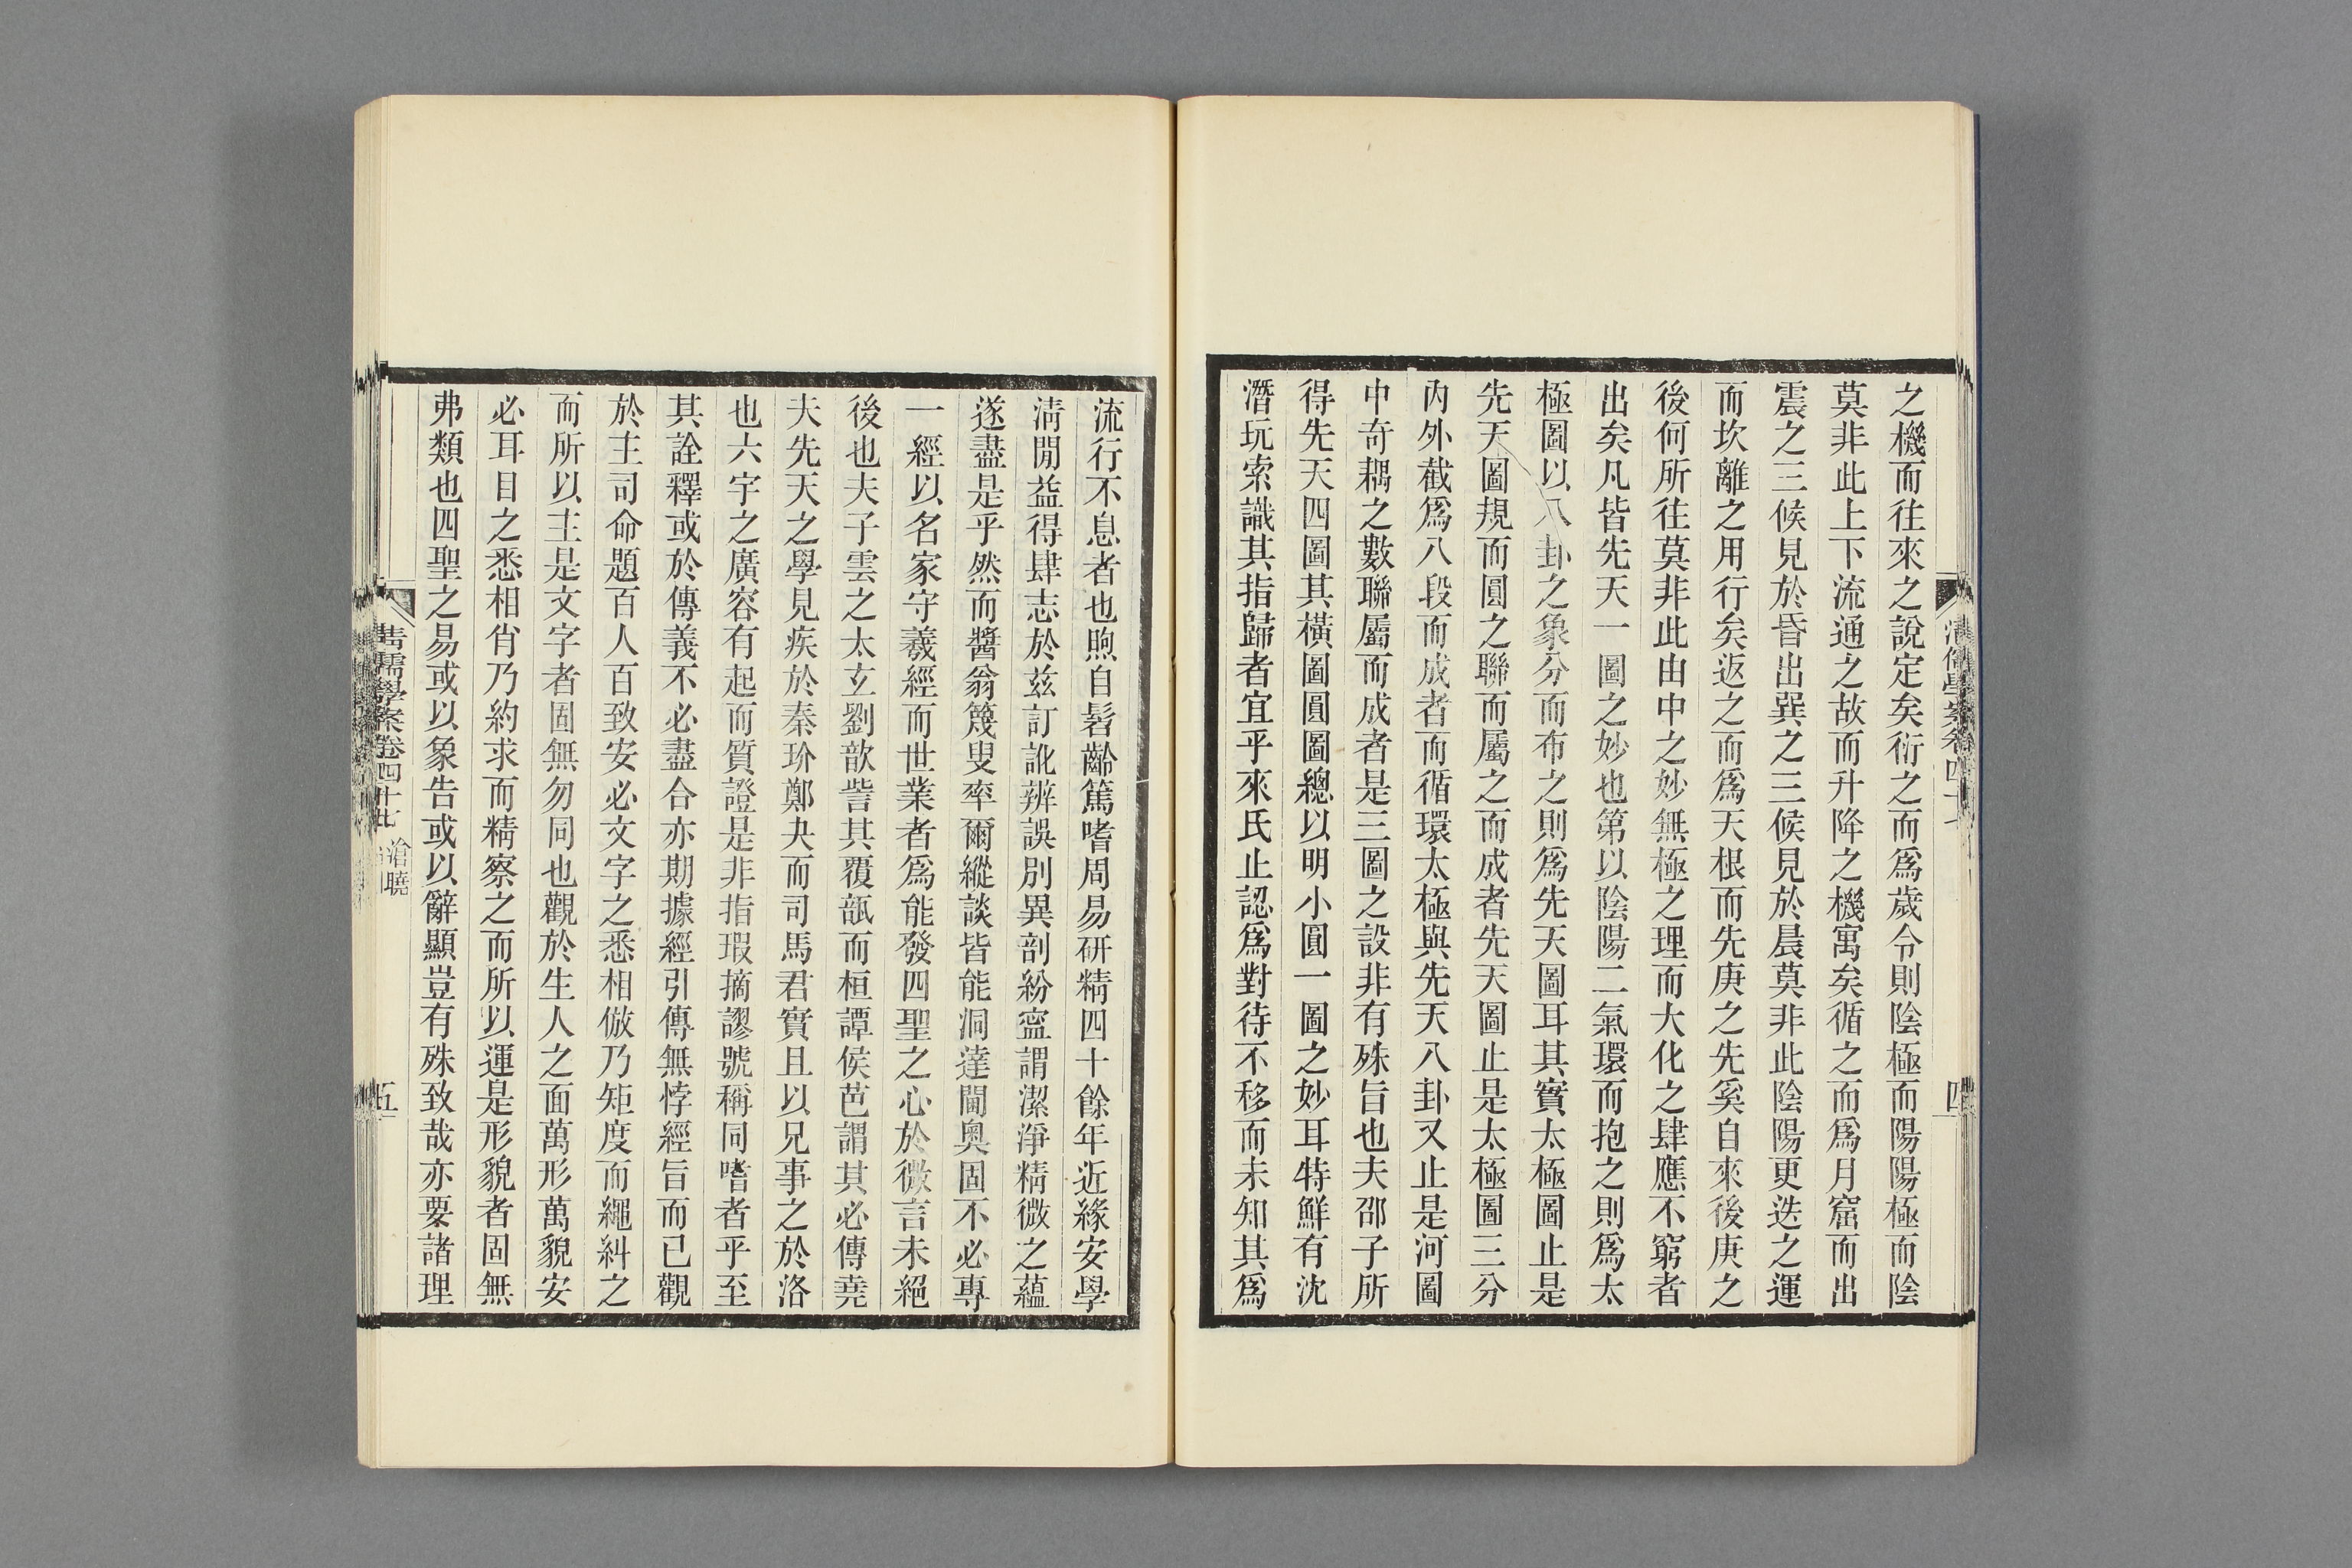 之機而往來之說定矣衍之而爲歲令則陰極而陽陽極而陰
莫非此上下流通之故而升降之機寓矣循之而爲月窟而出
震之三候見於昏出巽之三候見於晨莫非此陰陽更迭之運
而坎離之用行矣返之而爲天根而先庚之先奚自來後庚之
後何所往莫非此由中之妙無極之理而大化之肆應不窮者
出矣凡皆先天一圖之妙也第以陰陽二氣環而抱之則爲太
極圖以八卦之象分而布之則爲先天圖耳其實太極圖止是
先天圖規而圓之聯而屬之而成者先天圖止是太極圖三分
內外截爲八段而成者而循環太極與先天八卦又止是河圖
中奇耦之數聯屬而成者是三圖之設非有殊旨也夫邵子所
得先天四圖其橫圖圓圖總以明小圓一圖之妙耳特鮮有沈
潛玩索識其指歸者宜乎來氏止認爲對待不移而未知其爲
四
流行不息者也煦自髫齡篤嗜周易研精四十餘年近緣安學
淸閒益得肆志於茲訂訛辨誤別異剖紛寍謂潔淨精微之蘊
遂盡是乎然而醬翁篾叟率爾縱談皆能洞達閫奧固不必專
一經以名家守羲經而世業者爲能發四聖之心於微言未絕
後也夫子雲之太玄劉歆訾其覆瓿而桓譚侯芭謂其必傳堯
夫先天之學見疾於秦玠鄭夬而司馬君實且以兄事之於洛
也六宇之廣容有起而質證是非指瑕摘謬號稱同嗜者乎至
其詮釋或於傳義不必盡合亦期據經引傳無悖經旨而已觀
於主司命題百人百致安必文字之悉相倣乃矩度而繩糾之
而所以主是文字者固無勿同也觀於生人之面萬形萬貌安
必耳目之悉相肖乃約求而精察之而所以運是形貌者固無
弗類也四聖之易或以象告或以辭顯豈有殊致哉亦要諸理
淸儒學案卷四十七 滄曉
五